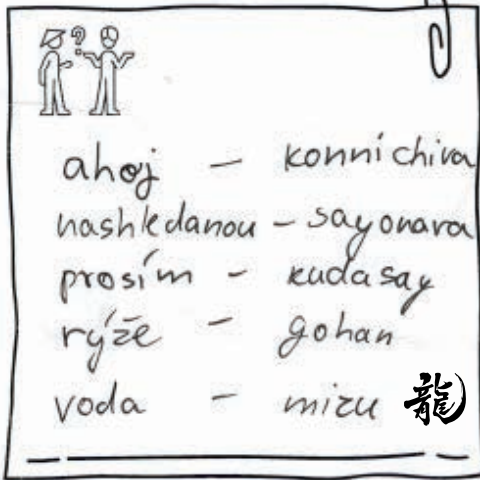 ahoj - konnichiva
nashledanou - sayonara
prosím - kudasay
rýže - gohan
voda - mizu 龍